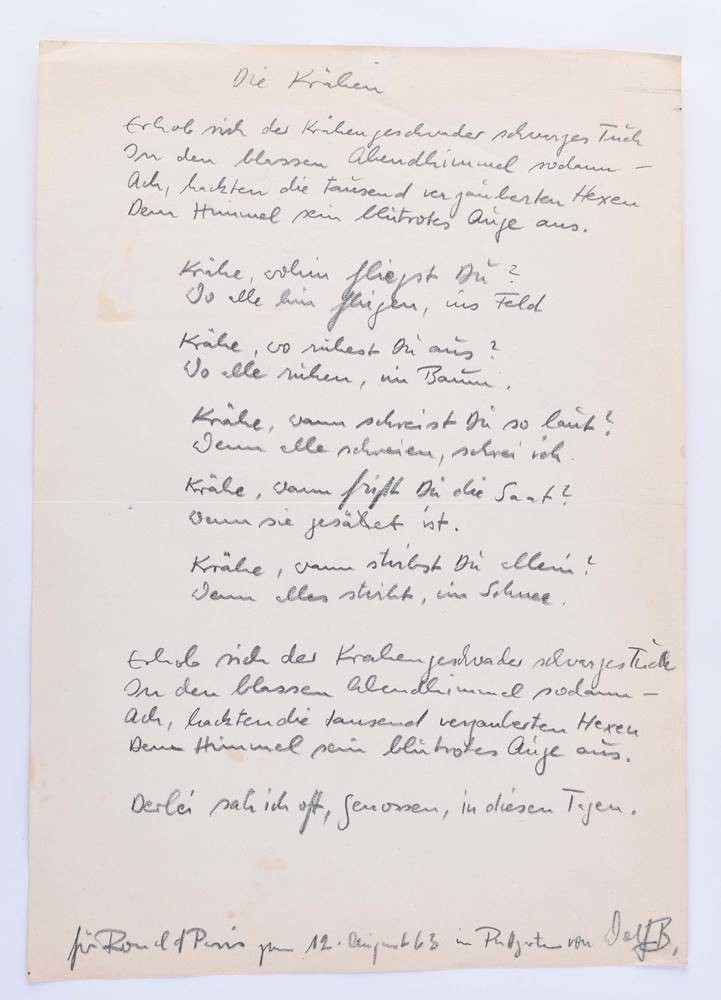 Die Krähen
Erhob sich der Krähengeschwader schwarzes Tuch
In den blassen Abendhimmel sodann –
Ach, hackten die tausend verzauberten Hexen
Dem Himmel sein blutrotes Auge aus.
Krähe, wohin fliegst Du?
Wo alle hin fliegen, ins Feld
Krähe, wo ruhest Du aus?
Wo alle ruhen, im Baum.
Krähe, wann schreist Du so laut?
Wenn alle schreien, schrei ich.
Krähe, wann frißt Du die Saat?
Wenn sie gesäet ist.
Krähe, wann stirbst Du allein?
Wenn alles stirbt, im Schnee.
Erhob sich der Krähengeschwader schwarzes Tuch
In den blassen Abendhimmel sodann –
Ach, hackten die tausend verzauberten Hexen
Dem Himmel sein blutrotes Auge aus.
Derlei sah ich oft, Genossen, in diesen Tagen.
für Ronald Paris zum 12. August 63 im von Wolf B.